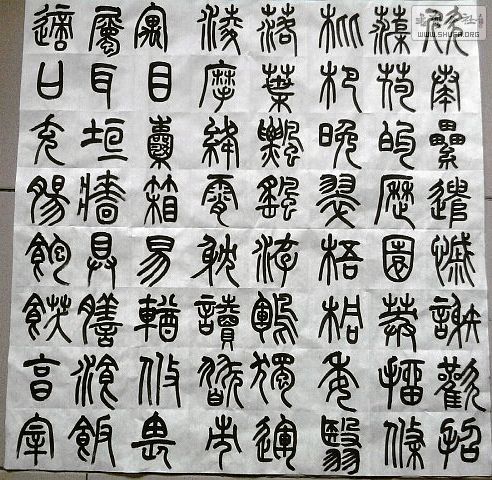 欣奏累遣慼謝歡招
蕖荷的歷園莽抽條
枇杷晚翠梧桐委翳
落葉飄颻游鵾獨運
凌摩絳霄耽讀翫市
寓目囊箱易輶攸畏
屬耳垣牆具膳飡飯
適口充腸飽飫亨宰
WWW.SHUFA.ORG